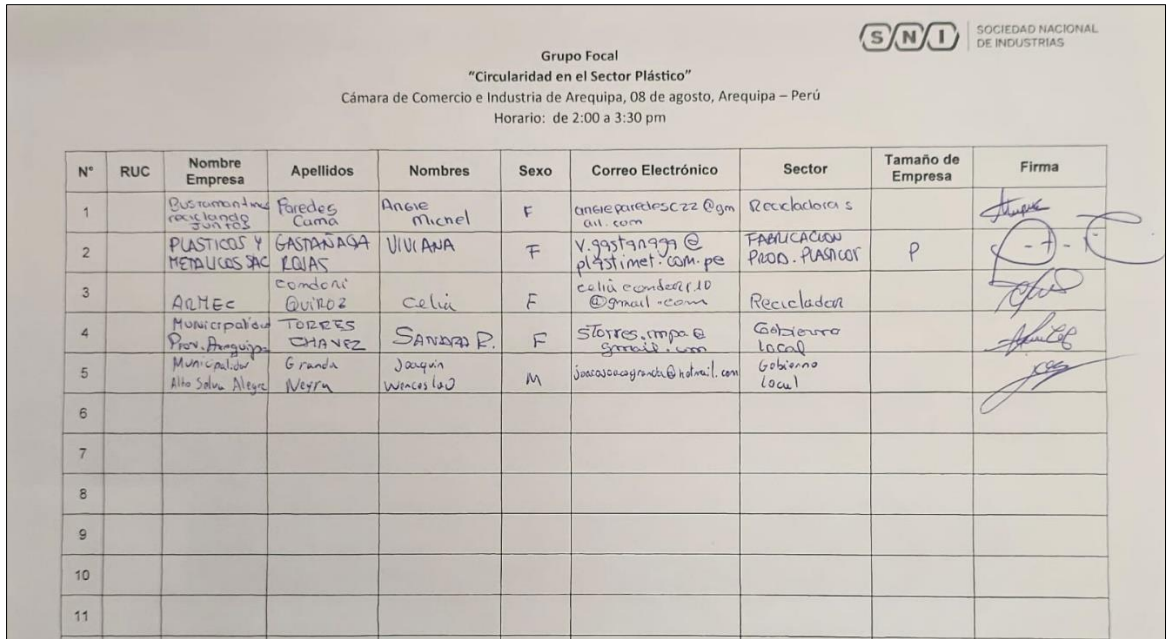 SNI SOCIEDAD NACIONAL
DE INDUSTRIAS
Grupo Focal
"Circularidad en el Sector Plástico"
Cámara de Comercio e Industria de Arequipa, 08 de agosto, Arequipa – Perú
Horario: de 2:00 a 3:30 pm
N° RUC Nombre Empresa Apellidos Nombres Sexo Correo Electrónico Sector Tamaño de Empresa Firma
1 reciclando Juntos Paredes Cama Angie Michel F angieparedescz22@gmail.com Recicladoras
2 PLASTICOS Y METALICOS SAC GASTAÑAGA ROJAS VIVIANA F v.gastanaga@plastimet.com.pe FABRICACION PROD. PLASTICOS P
3 ARMEC Condori QUIROZ Celia F @gmail.com Reciclador
4 Municipalidad Prov. Arequipa TORRES CHAVEZ SANDRA P. F storres.mpa@gmail.com Gobierno Local
5 Municipalidad Alto Selva Alegre Granda Neyra Joaquin Wenceslao M @hotmail.com Gobierno Local
6
7
8
9
10
11